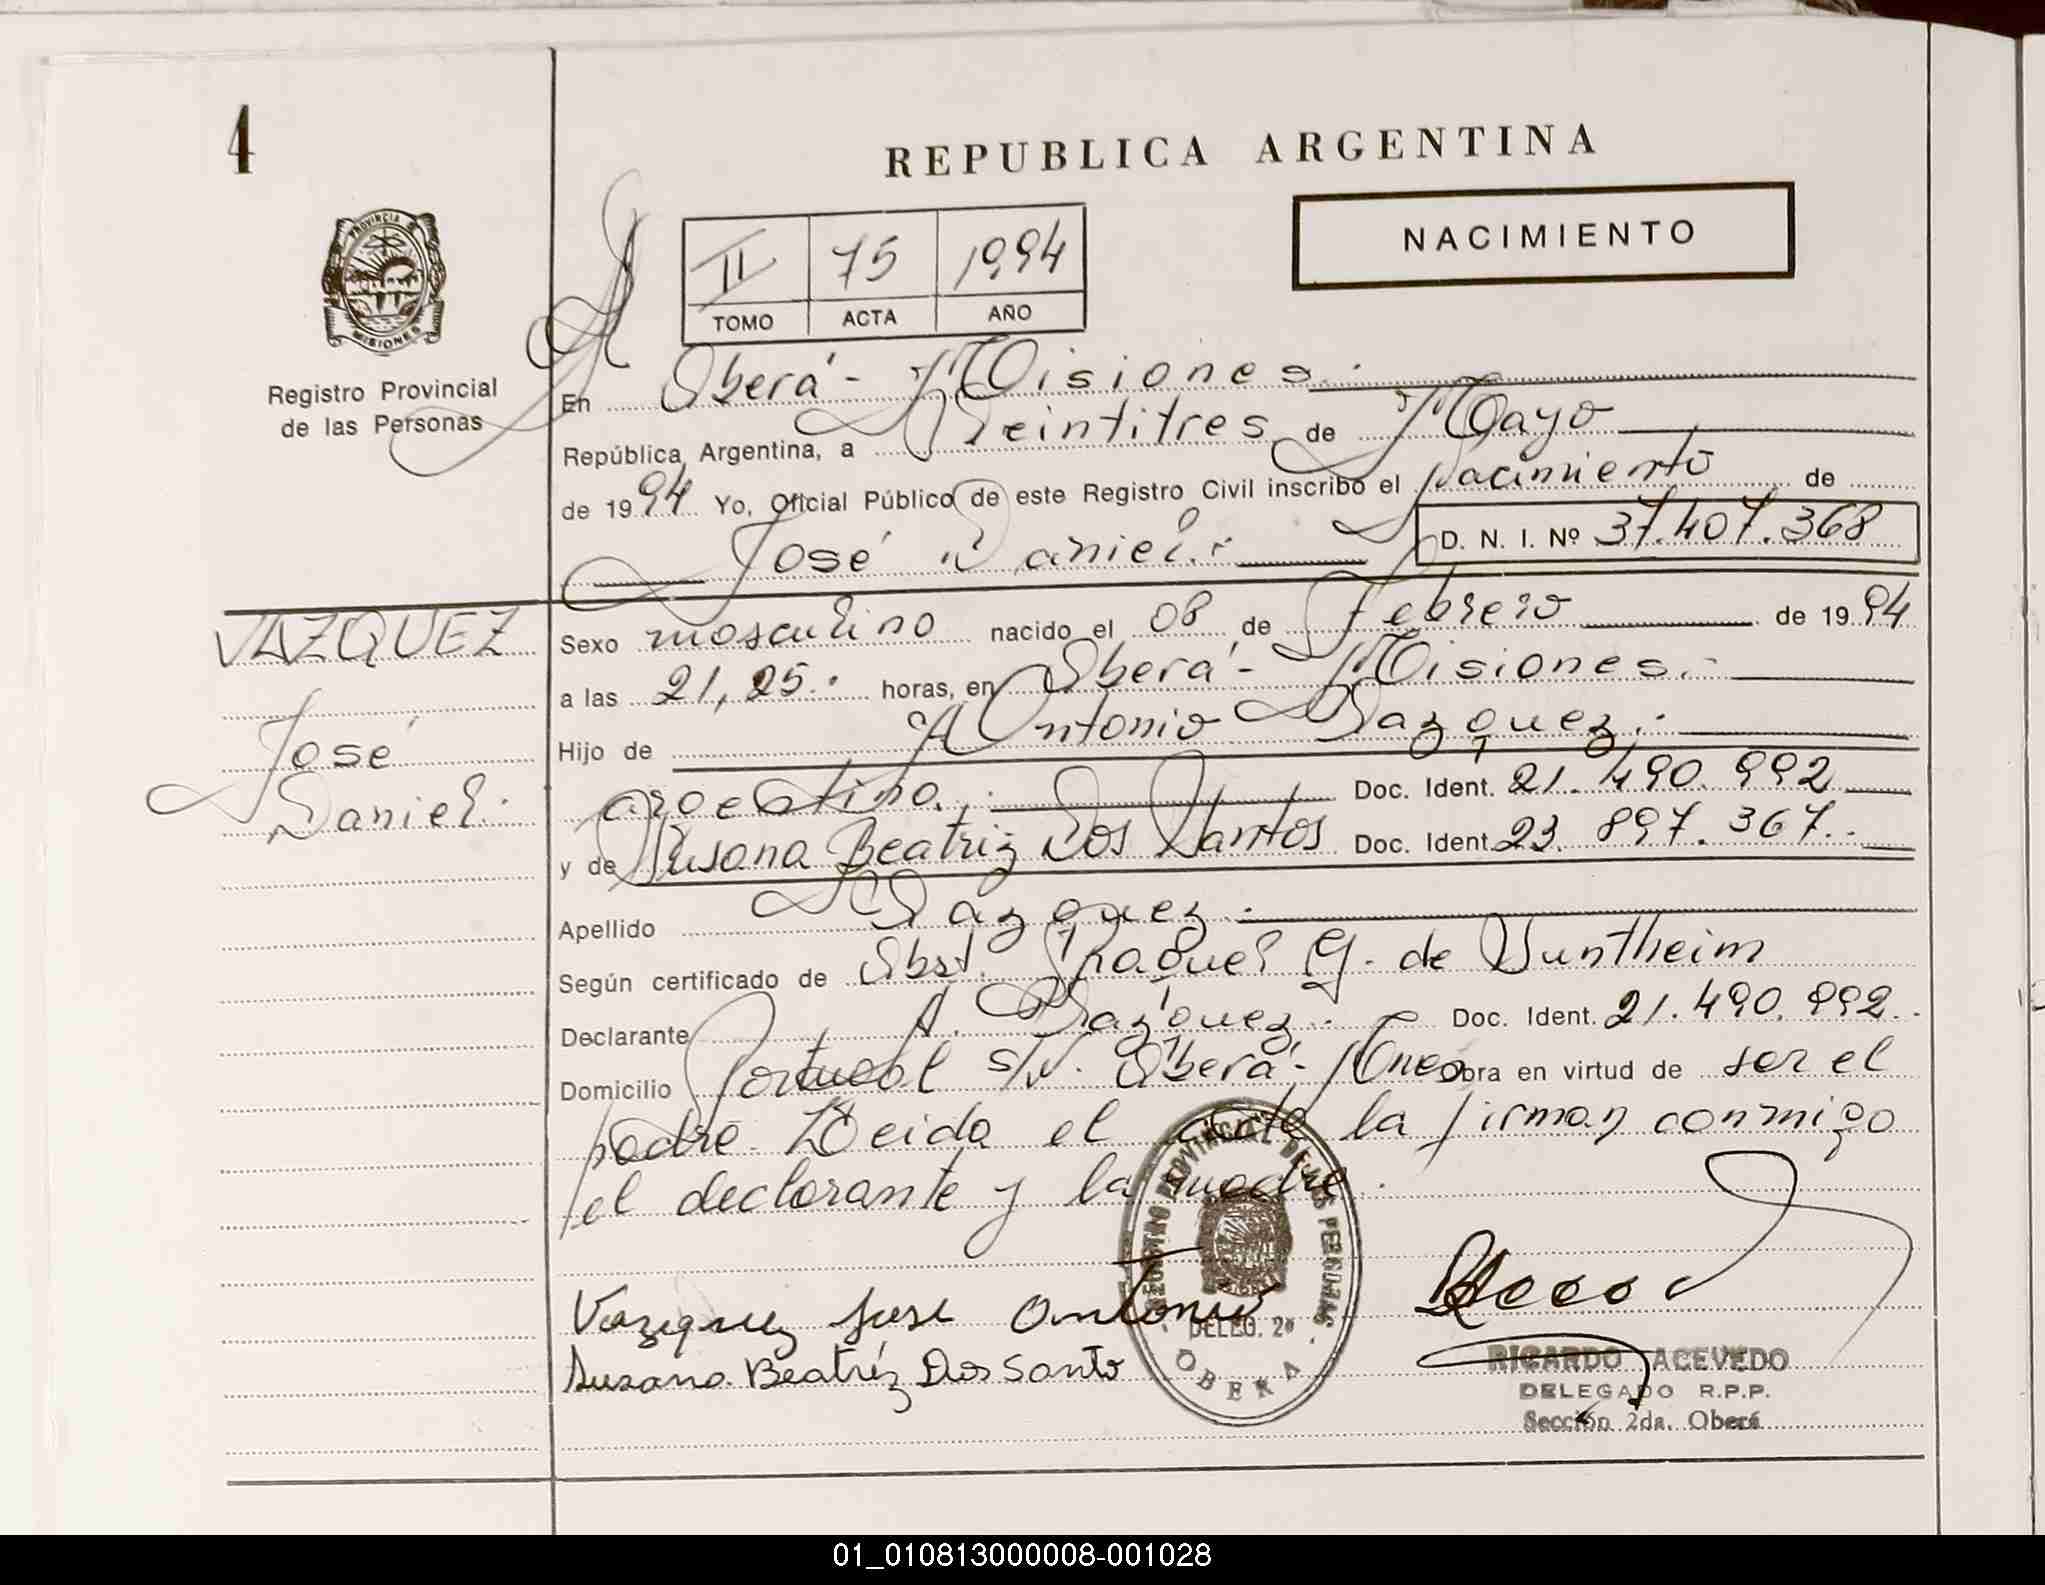 4
REPUBLICA ARGENTINA
NACIMIENTO
II 75 1994
TOMO ACTA AÑO
PROVINCIA
MISIONES
Registro Provincial
de las Personas
En Oberá - Misiones.
República Argentina, a Veintitres de Mayo
de 1994 Yo, Oficial Público de este Registro Civil inscribo el Nacimiento de
José Daniel.
D. N. I. Nº 37.407.368
VAZQUEZ
José
Daniel.
Sexo masculino nacido el 08 de Febrero de 1994
a las 21,25. horas, en Oberá - Misiones.
Hijo de Antonio Vazquez.
argentino. Doc. Ident. 21.490.992
y de Susana Beatriz Dos Santos Doc. Ident. 23.897.367.
Apellido Vazquez.
Según certificado de Obst. Raquel G. de Duntheim
Declarante A. Vazquez. Doc. Ident. 21.490.992.
Domicilio Portugal s/N. Oberá - Mnes obra en virtud de ser el
padre. Leida el acta la firman conmigo
el declarante y la madre.
Vazquez Jose Antonio
Susana Beatriz Dos Santo
REGISTRO PROVINCIAL DE LAS PERSONAS
DELEG. 2ª
OBERA
RICARDO ACEVEDO
DELEGADO R.P.P.
Sección 2da. Oberá
01_010813000008-001028